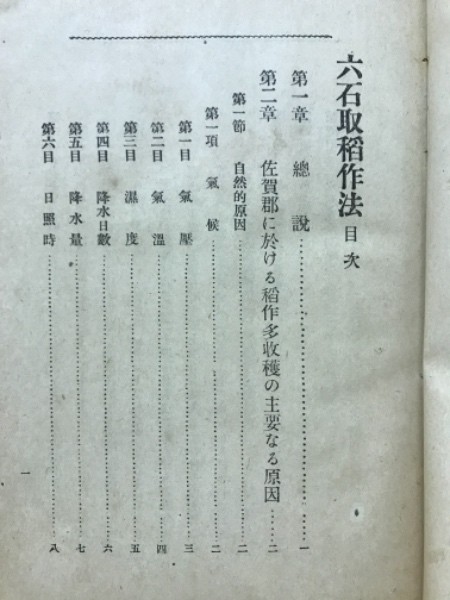 六石取稻作法 目次
第一章 總說……一
第二章 佐賀郡に於ける稻作多收穫の主要なる原因……二
第一節 自然的原因……二
第一項 氣候……二
第一目 氣壓……三
第二目 氣溫……四
第三目 濕度……五
第四目 降水日數……六
第五目 降水量……七
第六目 日照時……八
一